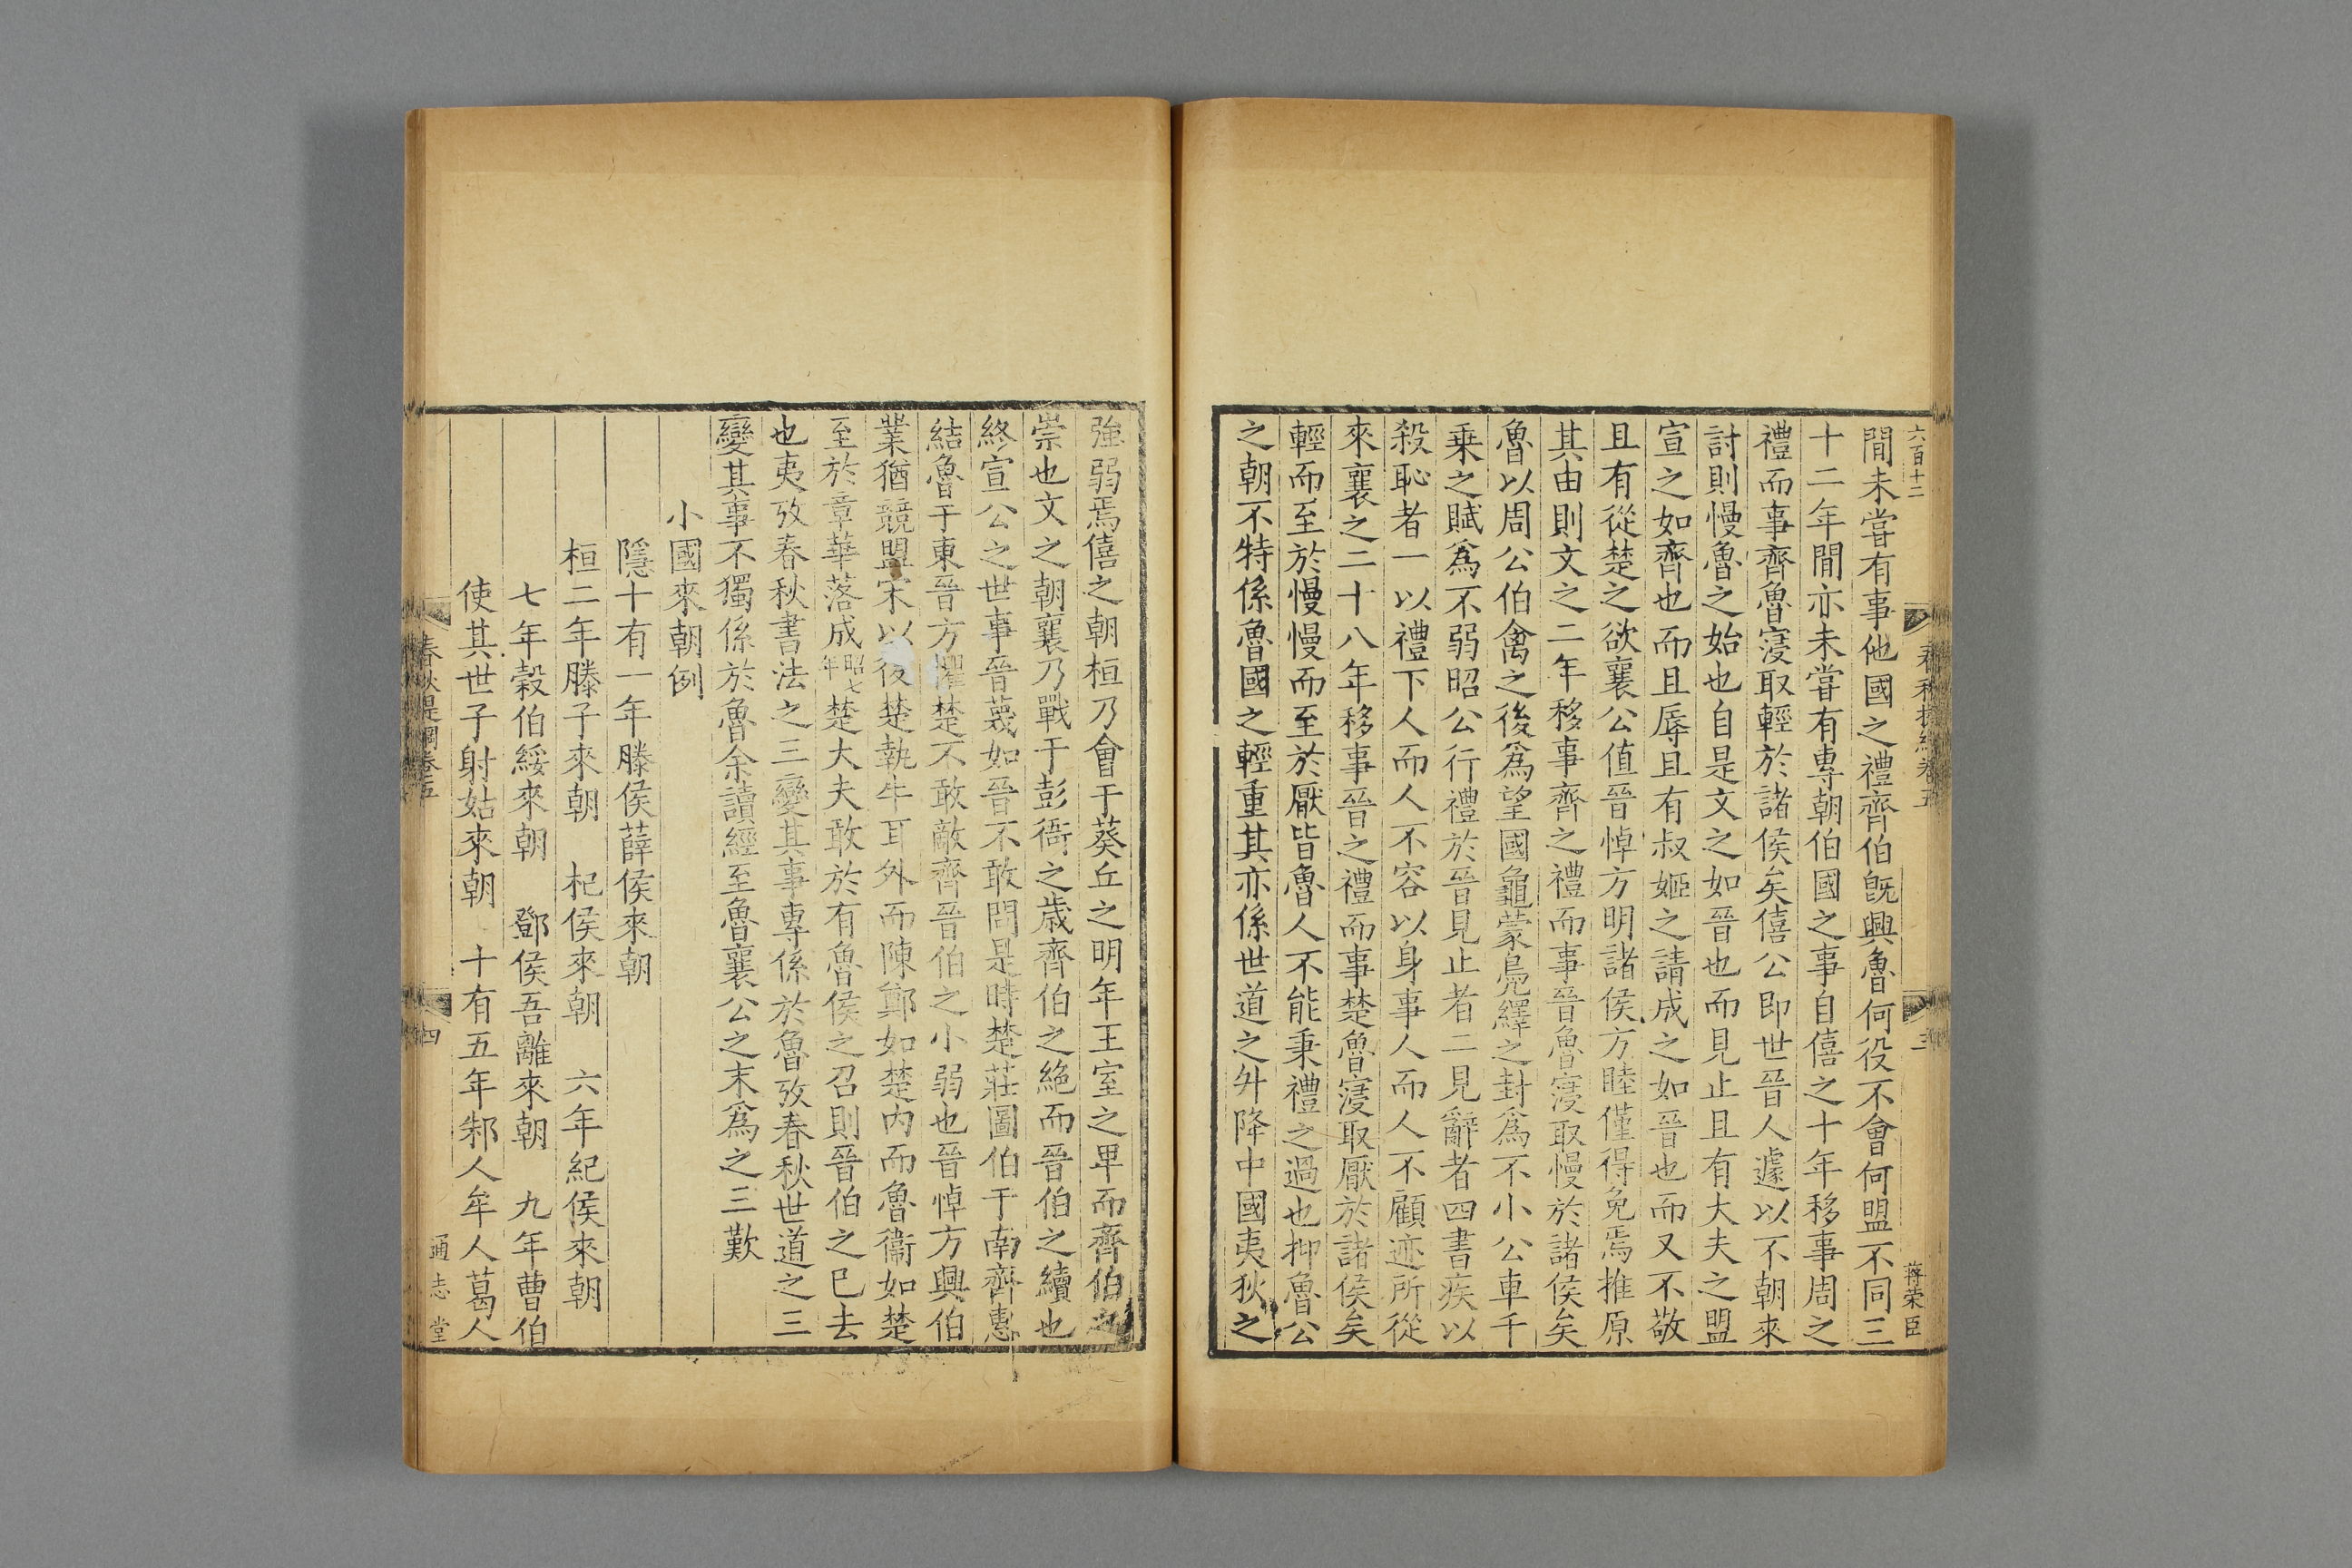 六百十二
春秋提綱卷五
三
蔣榮臣
間未嘗有事他國之禮齊伯旣興魯何役不會何盟不同三
十二年間亦未嘗有專朝伯國之事自僖之十年移事周之
禮而事齊魯寖取輕於諸侯矣僖公即世晉人遽以不朝來
討則慢魯之始也自是文之如晉也而見止且有大夫之盟
宣之如齊也而且辱且有叔姬之請成之如晉也而又不敬
且有從楚之欲襄公值晉悼方明諸侯方睦僅得免焉推原
其由則文之二年移事齊之禮而事晉魯寖取慢於諸侯矣
魯以周公伯禽之後爲望國龜蒙鳧繹之封爲不小公車千
乗之賦爲不弱昭公行禮於晉見止者二見辭者四書疾以
殺恥者一以禮下人而人不容以身事人而人不顧迹所從
來襄之二十八年移事晉之禮而事楚魯寖取厭於諸侯矣
輕而至於慢慢而至於厭皆魯人不能秉禮之過也抑魯公
之朝不特係魯國之輕重其亦係世道之升降中國夷狄之
強弱焉僖之朝桓乃會于葵丘之明年王室之卑而齊伯之
崇也文之朝襄乃戰于彭衙之歲齊伯之絶而晉伯之續也
終宣公之世事晉蔑如晉不敢問是時楚莊圖伯于南齊惠
結魯于東晉方懼楚不敢敵齊晉伯之小弱也晉悼方興伯
業猶競盟宋以後楚執牛耳外而陳鄭如楚内而魯衞如楚
至於章華落成昭七年楚大夫敢於有魯侯之召則晉伯之已去
也夷攷春秋書法之三變其事專係於魯攷春秋世道之三
變其事不獨係於魯余讀經至魯襄公之末爲之三歎
小國來朝例
隱十有一年滕侯薛侯來朝
桓二年滕子來朝　杞侯來朝　六年紀侯來朝
七年穀伯綏來朝　鄧侯吾離來朝　九年曹伯
使其世子射姑來朝　十有五年邾人牟人葛人
春秋提綱卷五
四
通志堂